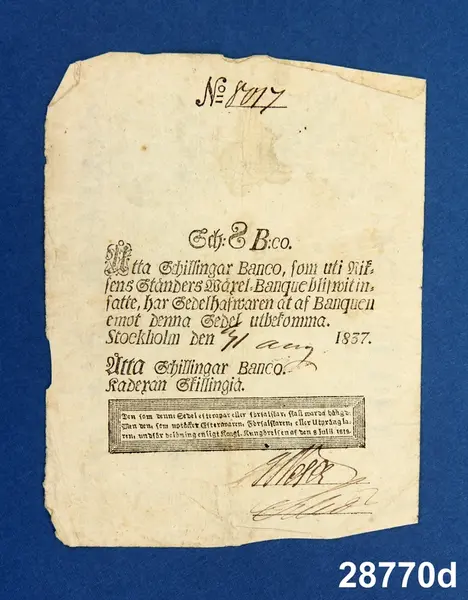 No 8017
Sch: 8 B:co.
Åtta Schillingar Banco, som uti Rik-
sens Ständers Wäxel-Banque blifwit in-
satte, har Sedelhafwaren at af Banquen
emot denna Sedel utbekomma.
Stockholm den aug 1837.
Åtta Schillingar Banco.
Kadexan Skillingiä.
Den som denne Sedel efterapar eller förfalskar, skall warda hängd.
Men den, som uptäcker Efteraparen, Förfalskaren, eller Utprångla-
ren, undfår belöning enligt Kongl. Kungörelsen af den
28770d